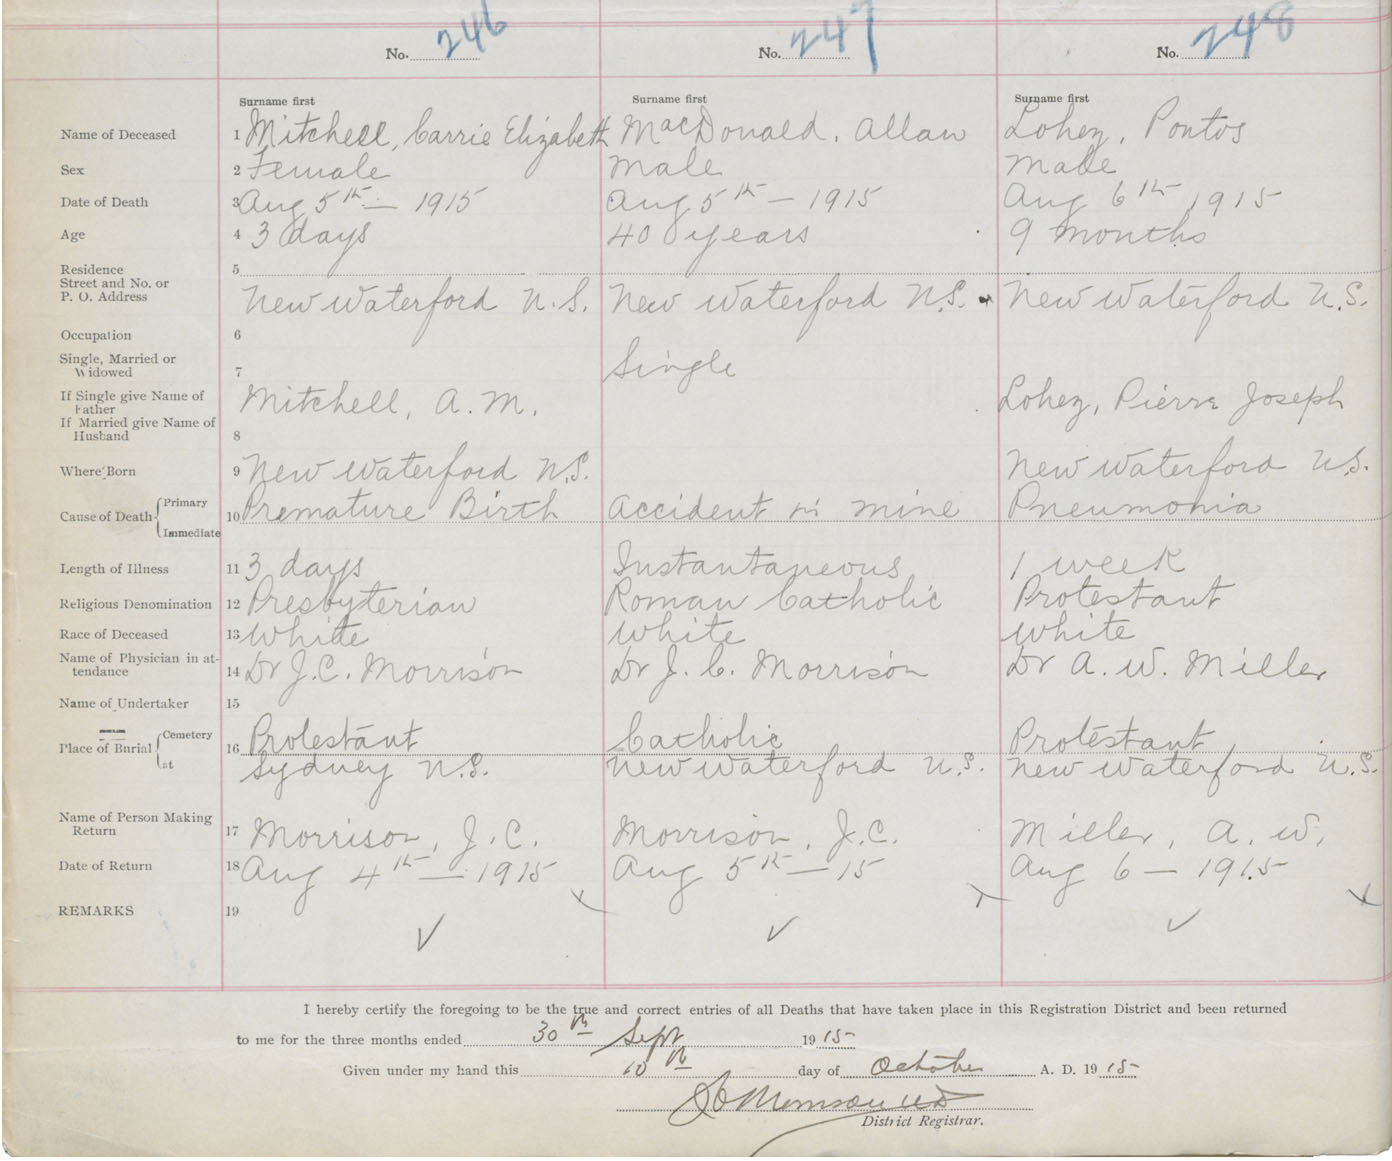 No. 246 No. 247 No. 248
Surname first Surname first Surname first
Name of Deceased 1 Mitchell, Carrie Elizabeth MacDonald, Allan Lohez, Pontos
Sex 2 Female male male
Date of Death 3 Aug 5th — 1915 Aug 5th — 1915 Aug 6th 1915
Age 4 3 days 40 years 9 months
Residence 5
Street and No. or
P. O. Address New Waterford N.S. New Waterford N.S. New Waterford N.S.
Occupation 6
Single, Married or
Widowed 7 Single
If Single give Name of
Father Mitchell, A.M. Lohez, Pierre Joseph
If Married give Name of
Husband 8
Where Born 9 New Waterford N.S. New Waterford N.S.
Cause of Death Primary 10 Premature Birth accident in mine Pneumonia
Immediate
Length of Illness 11 3 days Instantaneous 1 week
Religious Denomination 12 Presbyterian Roman Catholic Protestant
Race of Deceased 13 white white white
Name of Physician in at-
tendance 14 Dr J.C. Morrison Dr J.C. Morrison Dr A.W. Miller
Name of Undertaker 15
Place of Burial Cemetery 16 Protestant Catholic Protestant
at Sydney N.S. New Waterford N.S. New Waterford N.S.
Name of Person Making
Return 17 Morrison, J.C. Morrison, J.C. Miller, A.W.
Date of Return 18 Aug 4th — 1915 Aug 5th — 15 Aug 6 — 1915
REMARKS 19
I hereby certify the foregoing to be the true and correct entries of all Deaths that have taken place in this Registration District and been returned
to me for the three months ended 30th Sept 1915
Given under my hand this 10th day of October A. D. 1915
JC Morrison MD
District Registrar.